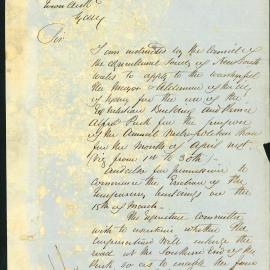 Town Clerk
Sydney
Sir
I am instructed by the Council of
the Agricultural Society of New South
Wales to apply to the Worshipful
the Mayor & Aldermen of the City
of Sydney for the use of the
Exhibition Building and Prince
Alfred Park for the purpose
of the Annual Metropolitan Show
for the Month of April next
Viz from 1st to 30th
and also for permission to
Commence the Erection of the
temporary buildings on the
15th of March
The Executive Committee
wish to ascertain whether the
Corporation will the
road at the Southern End of the
Park so as to enable the